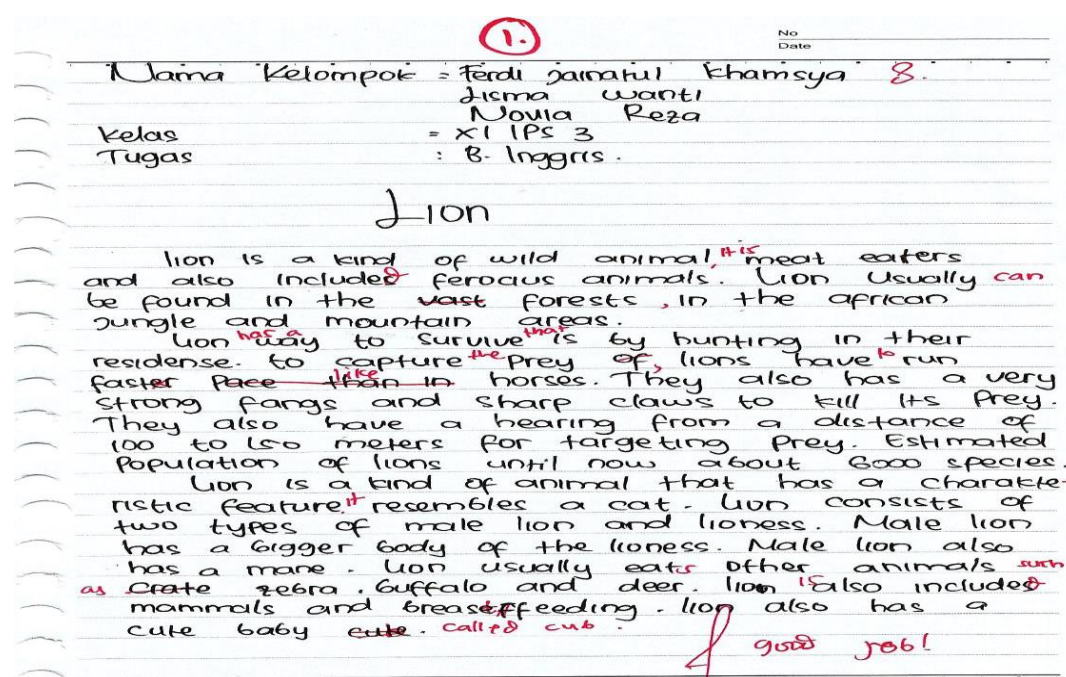 1.
No
Date
Nama Kelompok = Ferdi Jainatul Khamsya 8.
Lisma Wanti
Novia Reza
Kelas = XI IPS 3
Tugas : B. Inggris.
Lion
lion is a kind of wild animal, it is meat eaters
and also included ferocius animals. Lion Usually can
be found in the vast forests, in the african
Jungle and mountain areas.
Lion has a way to survive that is by hunting in their
residense. to capture the prey of, lions have to run
faster Pace than in like horses. They also has a very
strong fangs and sharp claws to kill its Prey.
They also have a hearing from a distance of
100 to 150 meters for targeting prey. Estimated
Population of lions until now about 6000 species.
Lion is a kind of animal that has a charakte-
ristic feature it resembles a cat. Lion consists of
two types of male lion and lioness. Male lion
has a bigger body of the lioness. Male lion also
has a mane. Lion usually eats other animals such
as Crate zebra. buffalo and deer. lion is also included
mammals and breastfeeding. lion also has a
cute baby cute. called cub.
good job!